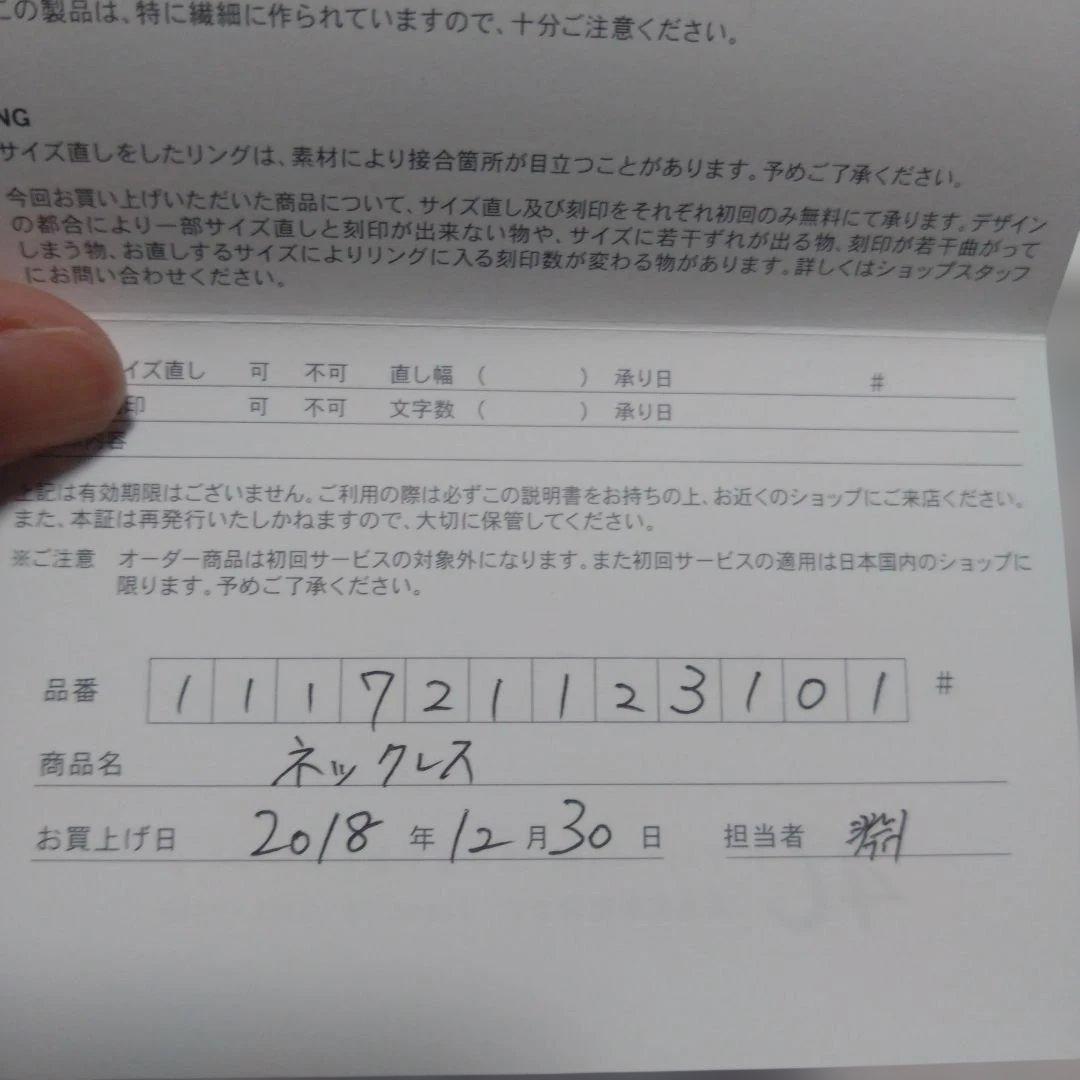 この製品は、特に繊細に作られていますので、十分ご注意ください。
NG
サイズ直しをしたリングは、素材により接合箇所が目立つことがあります。予めご了承ください。
今回お買い上げいただいた商品について、サイズ直し及び刻印をそれぞれ初回のみ無料にて承ります。デザイン
の都合により一部サイズ直しと刻印が出来ない物や、サイズに若干ずれが出る物、刻印が若干曲がって
しまう物、お直しするサイズによりリングに入る刻印数が変わる物があります。詳しくはショップスタッフ
にお問い合わせください。
イズ直し 可 不可 直し幅 ( ) 承り日 #
印 可 不可 文字数 ( ) 承り日
内容
上記は有効期限はございません。ご利用の際は必ずこの説明書をお持ちの上、お近くのショップにご来店ください。
また、本証は再発行いたしかねますので、大切に保管してください。
※ご注意 オーダー商品は初回サービスの対象外になります。また初回サービスの適用は日本国内のショップに
限ります。予めご了承ください。
品番 1 1 1 7 2 1 1 2 3 1 0 1 #
商品名 ネックレス
お買上げ日 2018 年 12 月 30 日 担当者